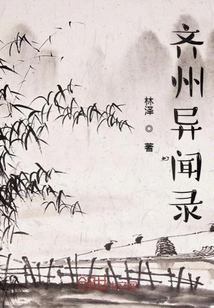 齐州异闻录
林泽
著